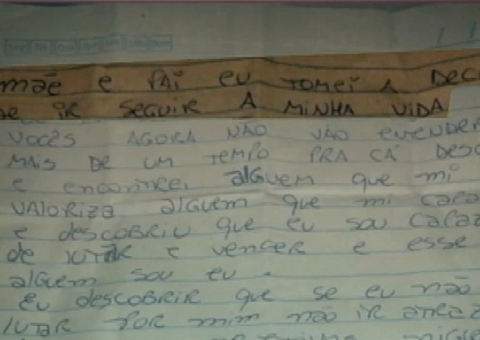 mãe e PAi EU TOMEi A DECI
DE IR SEGUIR A MINHA VIDA
VOCÊS AGORA NÃO VÃO ENTENDER
MAIS DE UM TEMPO PRA CÁ DESC
E encontrei alguem que mi
VALORIZA alguem que mi CAPA
e descobriu que eu sou CAPAZ
de lutar e vencer e esse
alguem sou eu.
EU DESCOBRIR que se eu não
lutar POR mim não ir atraz